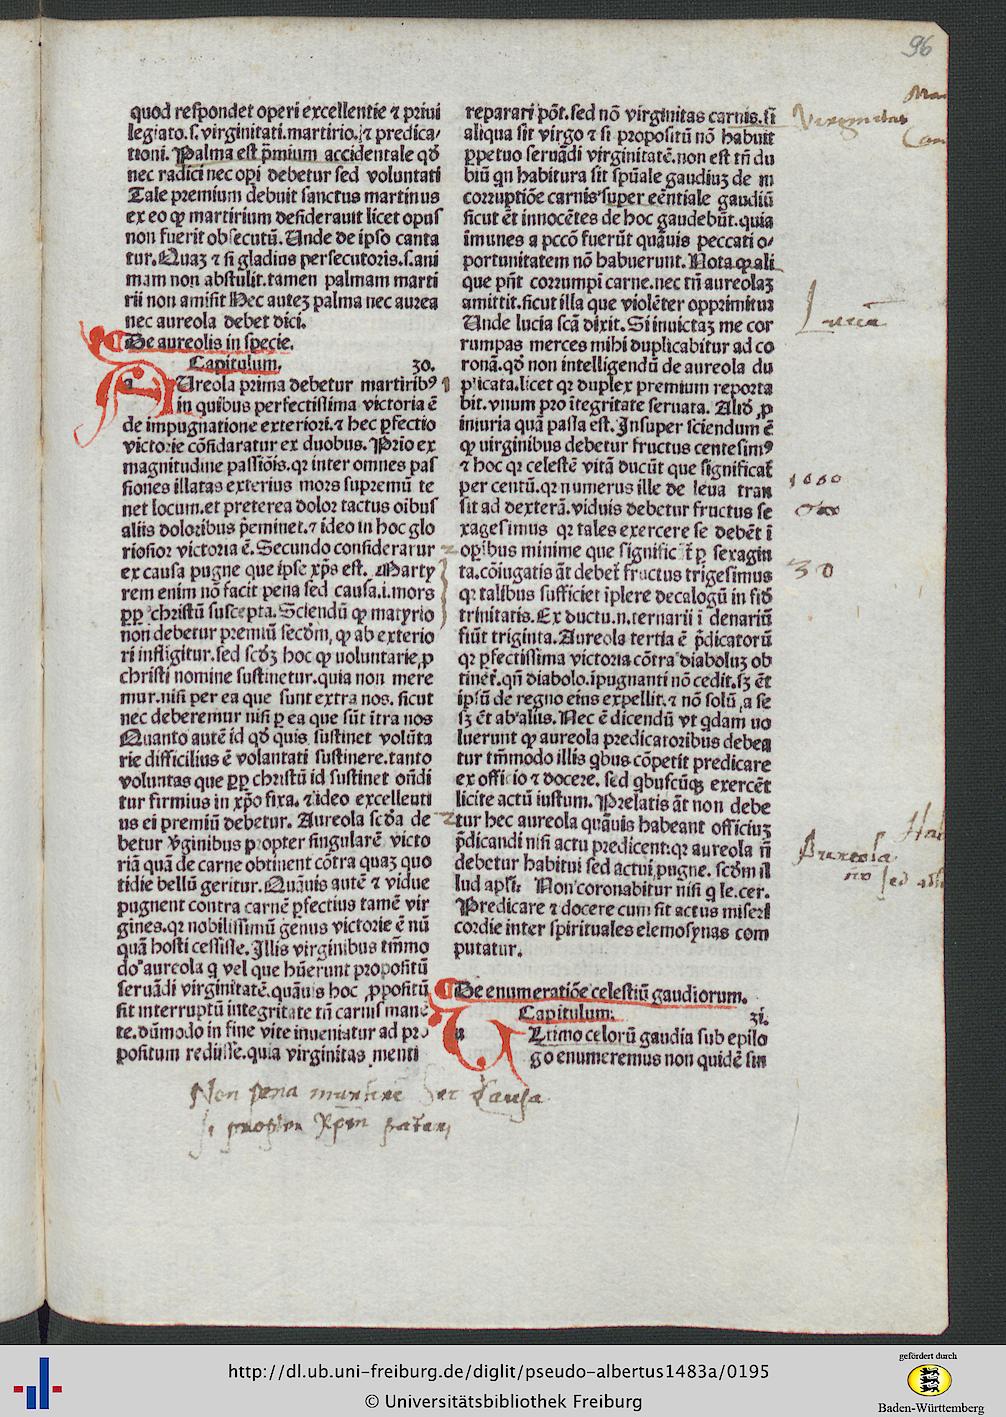 96
quod respondet operi excellentie ⁊ priui
legiato.s.virginitati.martirio.⁊ predica/
tioni. Palma est p̄mium accidentale qd̄
nec radici nec opi debetur sed voluntati
Tale premium debuit sanctus martinus
ex eo ꝙ martirium desiderauit licet opus
non fuerit obsecutū. Unde de ipso canta
tur. Quaʒ ⁊ si gladius persecutoris.s.ani
mam non abstulit.tamen palmam marti
rii non amisit Hec auteʒ palma nec aurea
nec aureola debet dici.
De aureolis in specie.
Capitulum. 30.
AUreola prima debetur martiribꝰ
in quibus perfectissima victoria ē
de impugnatione exteriori.⁊ hec ꝑfectio
victorie cōsidaratur ex duobus. Prīo ex
magnitudine passiōis.qꝛ inter omnes pas
siones illatas exterius mors supremū te
net locum.et preterea dolor tactus oībus
aliis doloribus p̄eminet.⁊ ideo in hoc glo
riosior victoria ē. Secundo consideratur
ex causa pugne que ipse xp̄s est. Marty
rem enim nō facit pena sed causa.i.mors
ꝓp̄ christū suscepta. Sciendū ꝙ matyrio
non debetur premiū secd̄m, ꝙ ab exterio
ri infligitur.sed scd̄ʒ hoc ꝙ uoluntarie,ꝓ
christi nomine sustinetur.quia non mere
mur.nisi per ea que sunt extra nos. sicut
nec deberemur nisi ꝑ ea que sūt ītra nos
Quanto autē id qd̄ quis sustinet volūta
rie difficilius ē volantati sustinere.tanto
voluntas que ꝓp̄ christū id sustinet ondi
tur firmius in xp̄o fixa. ⁊ ideo excellenti
us ei premiū debetur. Aureola scd̄a de
betur v̄ginibus propter singularē victo
riā quā de carne obtinent cōtra quaʒ quo
tidie bellū geritur. Quāuis autē ⁊ vidue
pugnent contra carnē ꝑfectius tamē vir
gines.qꝛ nobilissimū genus victorie ē nū
quā hosti cessisse. Illis virginibus tm̄mo
do aureola q̄ vel que hūerunt propositū
seruādi virginitatē.quāuis hoc ,ꝓpositū
sit interruptū integritate tn̄ carnis manē
te.dūmodo in fine vite inueniatur ad pro
positum rediisse.quia virginitas menti
reparari pōt.sed nō virginitas carnis.si
aliqua sit virgo ⁊ si propositū nō habuit
ꝑpetuo seruādi virginitatē.non est tn̄ du
biū qn̄ habitura sit spūale gaudiuʒ de in
corruptiōe carnis super eēntiale gaudiū
sicut ēt innocētes de hoc gaudebūt.quia
īmunes a pccō fuerūt quāuis peccati o/
portunitatem nō habuerunt. Nota ꝙ ali
que pn̄t corrumpi carne.nec tn̄ aureolaʒ
amittit.sicut illa que violēter opprimitur
Unde lucia scā dixit. Si inuictaʒ me cor
rumpas merces mihi duplicabitur ad co
ronā.qd̄ non intelligendū de aureola du
plicata.licet qꝛ duplex premium reporta
bit.vnum pro ītegritate seruata. Aliō ,ꝓ
iniuria quā passa est. Insuper sciendum ē
ꝙ uirginibus debetur fructus centesimꝰ
⁊ hoc qꝛ celestē vitā ducūt que significat̄
per centū.qꝛ numerus ille de leua tran
sit ad dexterā.viduis debetur fructus se
xagesimus qꝛ tales exercere se debēt ī
opībus minime que significāt̄ ꝑ sexagin
ta.cōiugatis āt debet̄ fructus trigesimus
qꝛ talibus sufficiet īplere decalogū in fidē
trinitatis. Ex ductu.n.ternarii ī denariū
fiūt triginta. Aureola tertia ē p̄dicatorū
qꝛ ꝑfectissima victoria cōtra diaboluʒ ob
tinet̄.qn̄ diabolo.īpugnanti nō cedit.sʒ ēt
ipsū de regno eius expellit.⁊ nō solū ,a se
sʒ ēt ab aliis. Nec ē dicendū vt qdam uo
luerunt ꝙ aureola predicatoribus debea
tur tm̄modo illis qbus cōpetit predicare
ex officio ⁊ docere. sed qbuscūqʒ exercēt
licite actū iustum. Prelatis āt non debe
tur hec aureola quāuis habeant officiuʒ
p̄dicandi nisi actu predicent.qꝛ aureola n̄
debetur habitui sed actui,pugne. scd̄m il
lud apli. Non coronabitur nisi q le.cer.
Predicare ⁊ docere cum sit actus miseri
cordie inter spirituales elemosynas com
putatur.
De enumeratiōe celestiū gaudiorum.
Capitulum. 31.
Ltimo celorū gaudia sub epilo
go enumeremus non quidē sin
Virginitas
Lucia
30
Aureola
Non pena martirē set Causa
http://dl.ub.uni-freiburg.de/diglit/pseudo-albertus1483a/0195
© Universitätsbibliothek Freiburg
gefördert durch
Baden-Württemberg